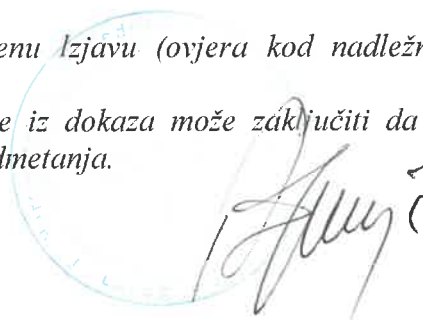 enu Izjavu (ovjera kod nadležn
e iz dokaza može zaključiti da
dmetanja.